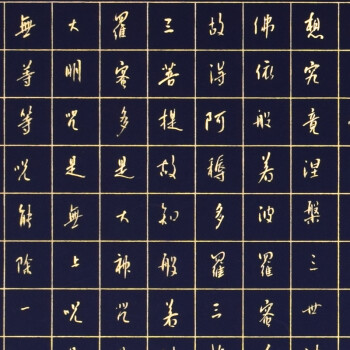 想究竟涅槃三世
佛依般若波羅蜜
故得阿耨多羅三
三菩提故知般若
羅蜜多是大神咒
大明咒是無上咒
無等等咒能除一